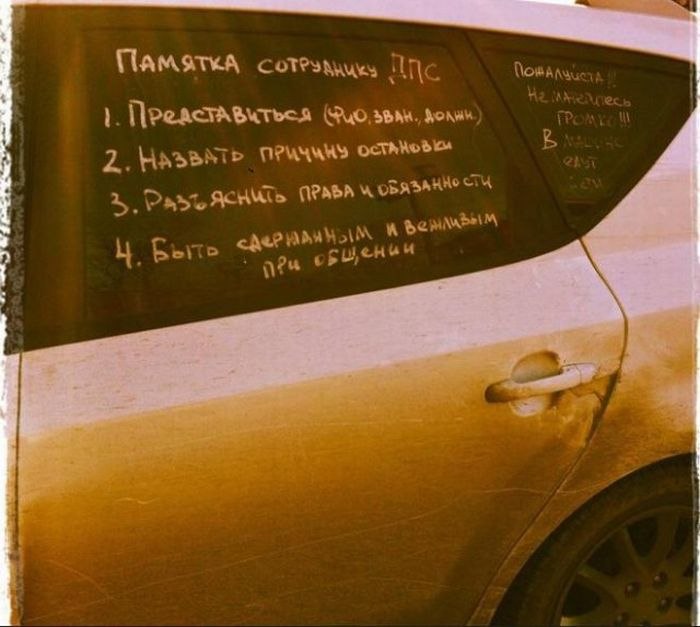 Памятка сотруднику ДПС
1. Представиться (ФИО, зван., должн.)
2. Назвать причину остановки
3. Разъяснить права и обязанности
4. Быть сдержанным и вежливым
при общении
Пожалуйста!!
Не матерітесь
громко!!!
В машине
едут
дети